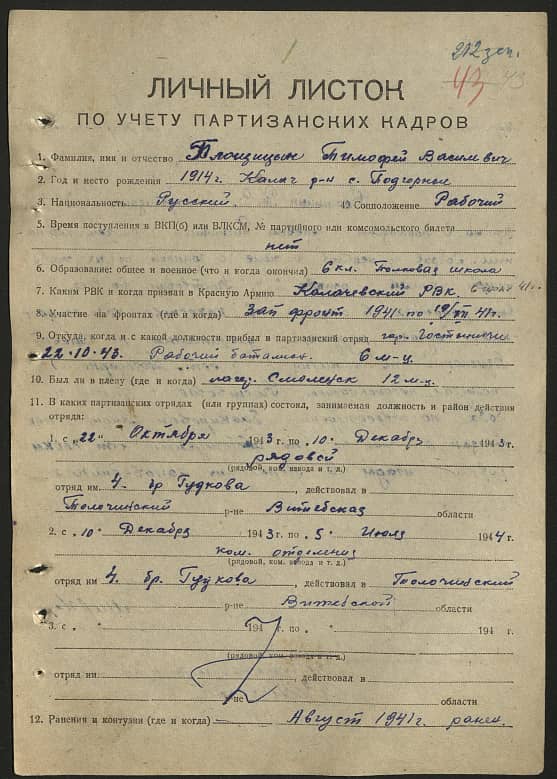 212 зоп.
43 43
ЛИЧНЫЙ ЛИСТОК
ПО УЧЕТУ ПАРТИЗАНСКИХ КАДРОВ
1. Фамилия, имя и отчество Тимофей Василевич
2. Год и место рождения 1914г. Калач р-н с. Подгорное
3. Национальность Русский. 4. Соцположение Рабочий
5. Время поступления в ВКП(б) или ВЛКСМ, № партийного или комсомольского билета
нет
6. Образование: общее и военное (что и когда окончил) 6 кл. Полковая школа
7. Каким РВК и когда призван в Красную Армию Калачевский РВК. 41г.
8. Участие на фронтах (где и когда) Зап фронт 1941 по 41г.
9. Откуда, когда и с какой должности прибыл в партизанский отряд гар.
22.10.43. Рабочий баталион. 6 м-ц.
10. Был ли в плену (где и когда) лагер. Смоленск 12 м-ц.
11. В каких партизанских отрядах (или группах) состоял, занимаемая должность и район действия
отряда:
1. с „22" Октября 1943 г. по „10" Декабрь 1943 г.
рядовой
(рядовой, ком. взвода и т. д.)
отряд им 4. бр Гудкова, действовал в
Толочинский р-не Витебская области
2. с „10" Декабрь 1943 г. по „5" Июля 1944 г.
ком. отделения
(рядовой, ком. взвода и т. д.)
отряд им 4. бр. Гудкова, действовал в Толочинский
р-не Витебской области
3. с „ 194 г. по „ 194 г.
(рядовой, ком взвода и т. д.)
отряд им. , действовал в
р-не области
12. Ранения и контузии (где и когда) Август 1941г. ранен.